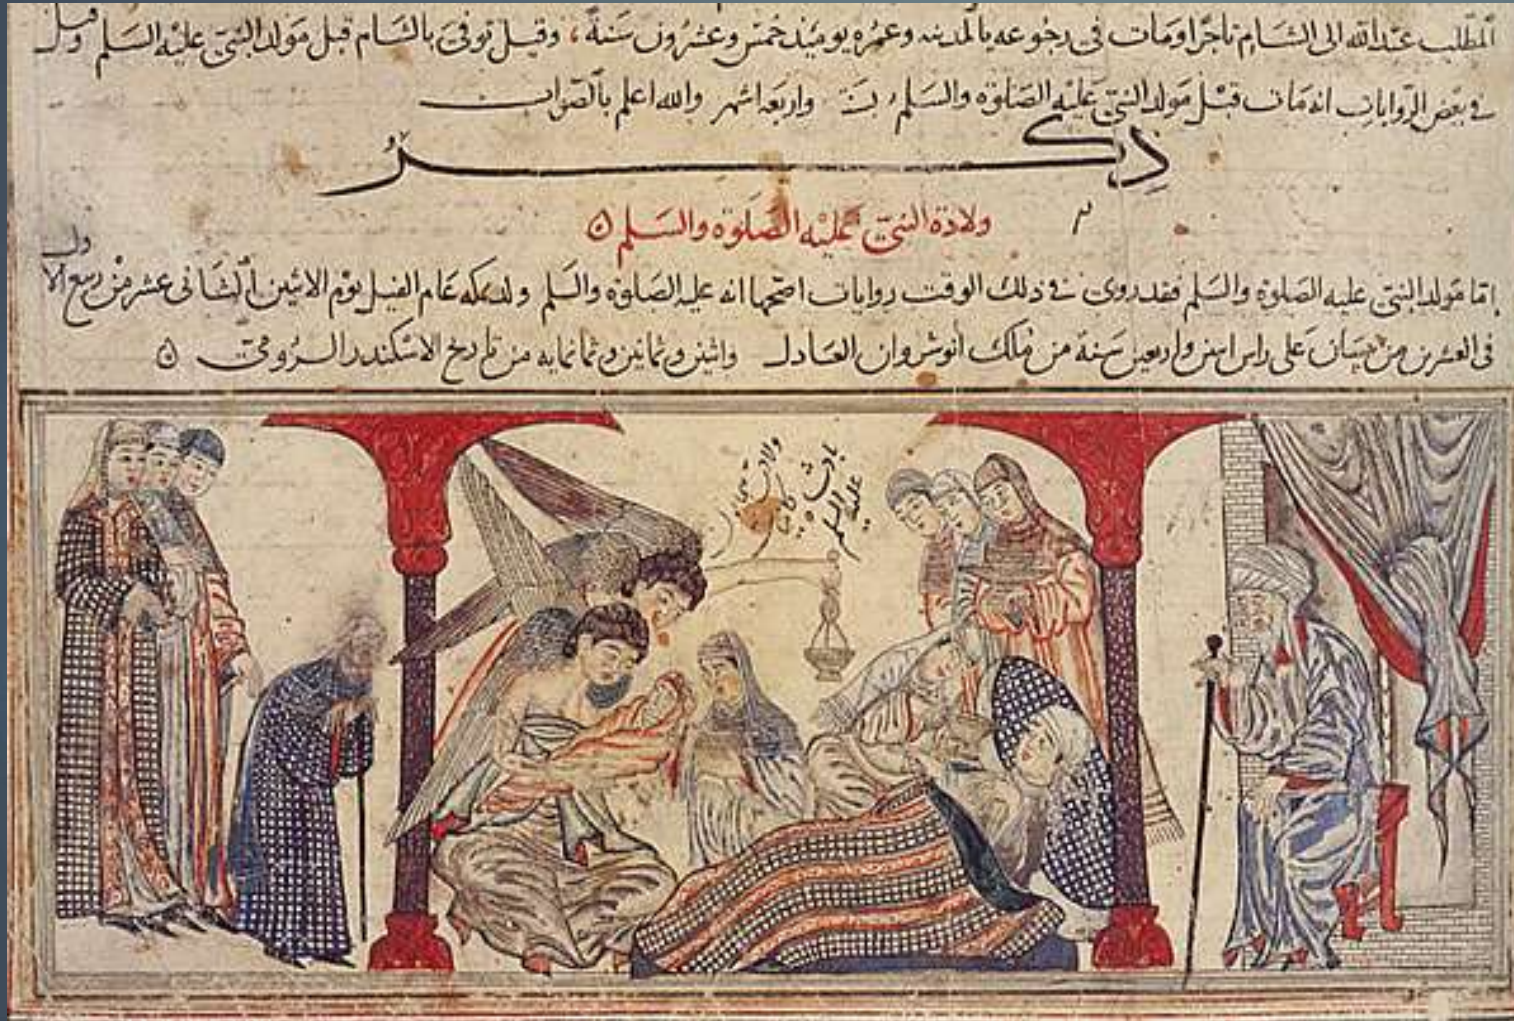 المطلب عبدالله الى الشام تاجرا ومات فى رجوعه بالمدينه وعمره يوميذ خمس وعشرون سنة ، وقيل توفى بالشام قبل مولد النبى عليه السلم وقيل
فى بعض الروايات انه مات قبل مولد النبى عليه الصلوة والسلم واربعة اشهر والله اعلم بالصواب
ذكر
ولادة النبى عليه الصلوة والسلم ه
اما مولد النبى عليه الصلوة والسلم فقد روى فى ذلك الوقت روايات اصحها انه عليه الصلوة والسلم ولد بمكه عام الفيل يوم الاثنين الثانى عشر من ربيع الاول
فى العشرين من نيسان على راس اثنين واربعين سنة من ملك انوشروان العادل واثنين وثمانين وثمانمايه من تاريخ الاسكندر الرومى ه
ولادت
عليه السلم